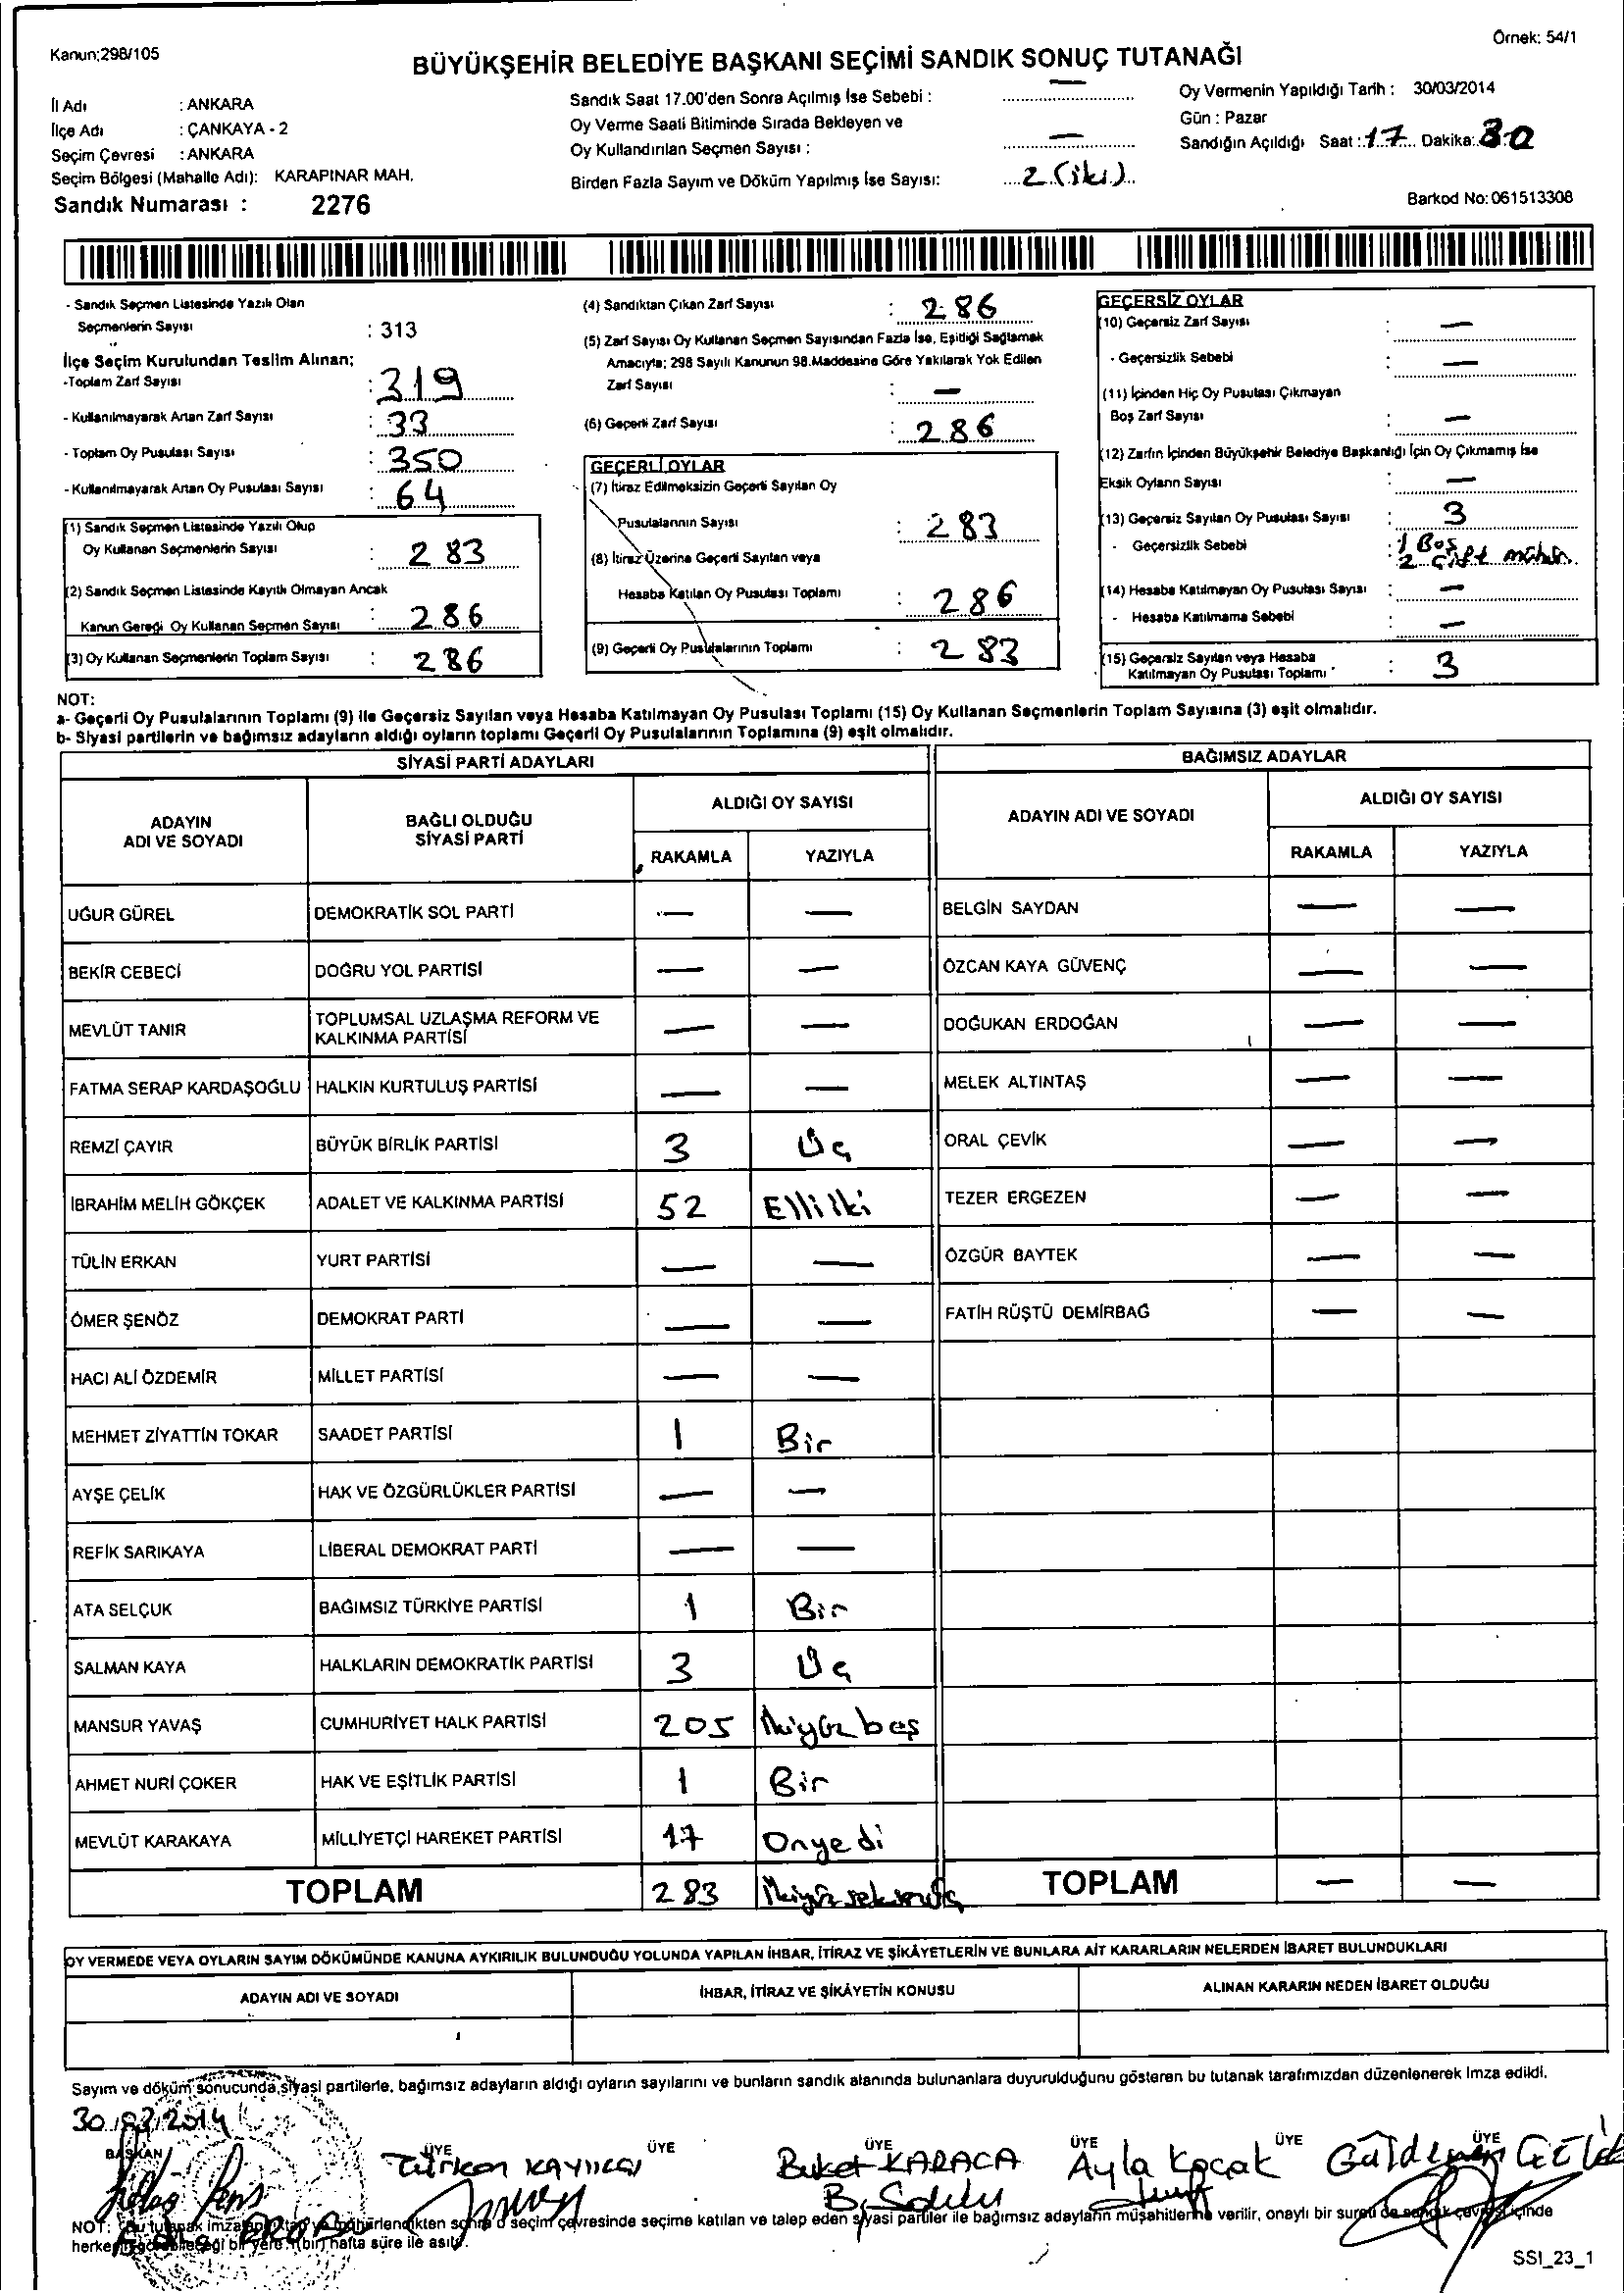 Kanun;298/105
Örnek: 54/1
BÜYÜKŞEHİR BELEDİYE BAŞKANI SEÇİMİ SANDIK SONUÇ TUTANAĞI
İl Adı : ANKARA
İlçe Adı : ÇANKAYA - 2
Seçim Çevresi : ANKARA
Seçim Bölgesi (Mahalle Adı): KARAPINAR MAH.
Sandık Numarası : 2276
Sandık Saat 17.00'den Sonra Açılmış İse Sebebi : —
Oy Verme Saati Bitiminde Sırada Bekleyen ve
Oy Kullandırılan Seçmen Sayısı : —
Birden Fazla Sayım ve Döküm Yapılmış İse Sayısı: 2 (iki)
Oy Vermenin Yapıldığı Tarih : 30/03/2014
Gün : Pazar
Sandığın Açıldığı Saat : 17 Dakika: 30
Barkod No: 061513308
- Sandık Seçmen Listesinde Yazılı Olan
Seçmenlerin Sayısı : 313
İlçe Seçim Kurulundan Teslim Alınan;
-Toplam Zarf Sayısı : 319
- Kullanılmayarak Artan Zarf Sayısı : 33
- Toplam Oy Pusulası Sayısı : 350
- Kullanılmayarak Artan Oy Pusulası Sayısı : 64
(1) Sandık Seçmen Listesinde Yazılı Olup
Oy Kullanan Seçmenlerin Sayısı : 283
(2) Sandık Seçmen Listesinde Kayıtlı Olmayan Ancak
Kanun Gereği Oy Kullanan Seçmen Sayısı : 286
(3) Oy Kullanan Seçmenlerin Toplam Sayısı : 286
(4) Sandıktan Çıkan Zarf Sayısı : 286
(5) Zarf Sayısı Oy Kullanan Seçmen Sayısından Fazla İse, Eşitliği Sağlamak
Amacıyla; 298 Sayılı Kanunun 98.Maddesine Göre Yakılarak Yok Edilen
Zarf Sayısı : —
(6) Geçerli Zarf Sayısı : 286
GEÇERLİ OYLAR
(7) İtiraz Edilmeksizin Geçerli Sayılan Oy
Pusulalarının Sayısı : 283
(8) İtiraz Üzerine Geçerli Sayılan veya
Hesaba Katılan Oy Pusulası Toplamı : 286
(9) Geçerli Oy Pusulalarının Toplamı : 283
GEÇERSİZ OYLAR
(10) Geçersiz Zarf Sayısı : —
- Geçersizlik Sebebi : —
(11) İçinden Hiç Oy Pusulası Çıkmayan
Boş Zarf Sayısı : —
(12) Zarfın İçinden Büyükşehir Belediye Başkanlığı İçin Oy Çıkmamış İse
Eksik Oyların Sayısı : —
(13) Geçersiz Sayılan Oy Pusulası Sayısı : 3
- Geçersizlik Sebebi : 1 Boş
2 çift mühür.
(14) Hesaba Katılmayan Oy Pusulası Sayısı : —
- Hesaba Katılmama Sebebi : —
(15) Geçersiz Sayılan veya Hesaba
Katılmayan Oy Pusulası Toplamı : 3
NOT:
a- Geçerli Oy Pusulalarının Toplamı (9) ile Geçersiz Sayılan veya Hesaba Katılmayan Oy Pusulası Toplamı (15) Oy Kullanan Seçmenlerin Toplam Sayısına (3) eşit olmalıdır.
b- Siyasi partilerin ve bağımsız adayların aldığı oyların toplamı Geçerli Oy Pusulalarının Toplamına (9) eşit olmalıdır.
SİYASİ PARTİ ADAYLARI
ADAYIN ADI VE SOYADI BAĞLI OLDUĞU SİYASİ PARTİ ALDIĞI OY SAYISI
RAKAMLA YAZIYLA
UĞUR GÜREL DEMOKRATİK SOL PARTİ — —
BEKİR CEBECİ DOĞRU YOL PARTİSİ — —
MEVLÜT TANIR TOPLUMSAL UZLAŞMA REFORM VE KALKINMA PARTİSİ — —
FATMA SERAP KARDAŞOĞLU HALKIN KURTULUŞ PARTİSİ — —
REMZİ ÇAYIR BÜYÜK BİRLİK PARTİSİ 3 Üç
İBRAHİM MELİH GÖKÇEK ADALET VE KALKINMA PARTİSİ 52 Elliiki
TÜLİN ERKAN YURT PARTİSİ — —
ÖMER ŞENÖZ DEMOKRAT PARTİ — —
HACI ALİ ÖZDEMİR MİLLET PARTİSİ — —
MEHMET ZİYATTİN TOKAR SAADET PARTİSİ 1 Bir
AYŞE ÇELİK HAK VE ÖZGÜRLÜKLER PARTİSİ — —
REFİK SARIKAYA LİBERAL DEMOKRAT PARTİ — —
ATA SELÇUK BAĞIMSIZ TÜRKİYE PARTİSİ 1 Bir
SALMAN KAYA HALKLARIN DEMOKRATİK PARTİSİ 3 Üç
MANSUR YAVAŞ CUMHURİYET HALK PARTİSİ 205 İkiyüzbeş
AHMET NURİ ÇOKER HAK VE EŞİTLİK PARTİSİ 1 Bir
MEVLÜT KARAKAYA MİLLİYETÇİ HAREKET PARTİSİ 17 Onyedi
TOPLAM 283 İkiyüzseksenüç
BAĞIMSIZ ADAYLAR
ADAYIN ADI VE SOYADI ALDIĞI OY SAYISI
RAKAMLA YAZIYLA
BELGİN SAYDAN — —
ÖZCAN KAYA GÜVENÇ — —
DOĞUKAN ERDOĞAN — —
MELEK ALTINTAŞ — —
ORAL ÇEVİK — —
TEZER ERGEZEN — —
ÖZGÜR BAYTEK — —
FATİH RÜŞTÜ DEMİRBAĞ — —
TOPLAM — —
OY VERMEDE VEYA OYLARIN SAYIM DÖKÜMÜNDE KANUNA AYKIRILIK BULUNDUĞU YOLUNDA YAPILAN İHBAR, İTİRAZ VE ŞİKÂYETLERİN VE BUNLARA AİT KARARLARIN NELERDEN İBARET BULUNDUKLARI
ADAYIN ADI VE SOYADI İHBAR, İTİRAZ VE ŞİKÂYETİN KONUSU ALINAN KARARIN NEDEN İBARET OLDUĞU
Sayım ve döküm sonucunda,siyasi partilerle, bağımsız adayların aldığı oyların sayılarını ve bunların sandık alanında bulunanlara duyurulduğunu gösteren bu tutanak tarafımızdan düzenlenerek imza edildi.
30.03.2014
BAŞKAN ÜYE ÜYE ÜYE ÜYE ÜYE ÜYE
Türkan Buket KARACA Ayla Koçak
NOT: Bu tutanak imzalanıp ve mühürlendikten sonra o seçim çevresinde seçime katılan ve talep eden siyasi partiler ile bağımsız adayların müşahitlerine verilir, onaylı bir sureti de sandık çevresi içinde
herkesin görebileceği bir yere 1(bir) hafta süre ile asılır.
SSI_23_1